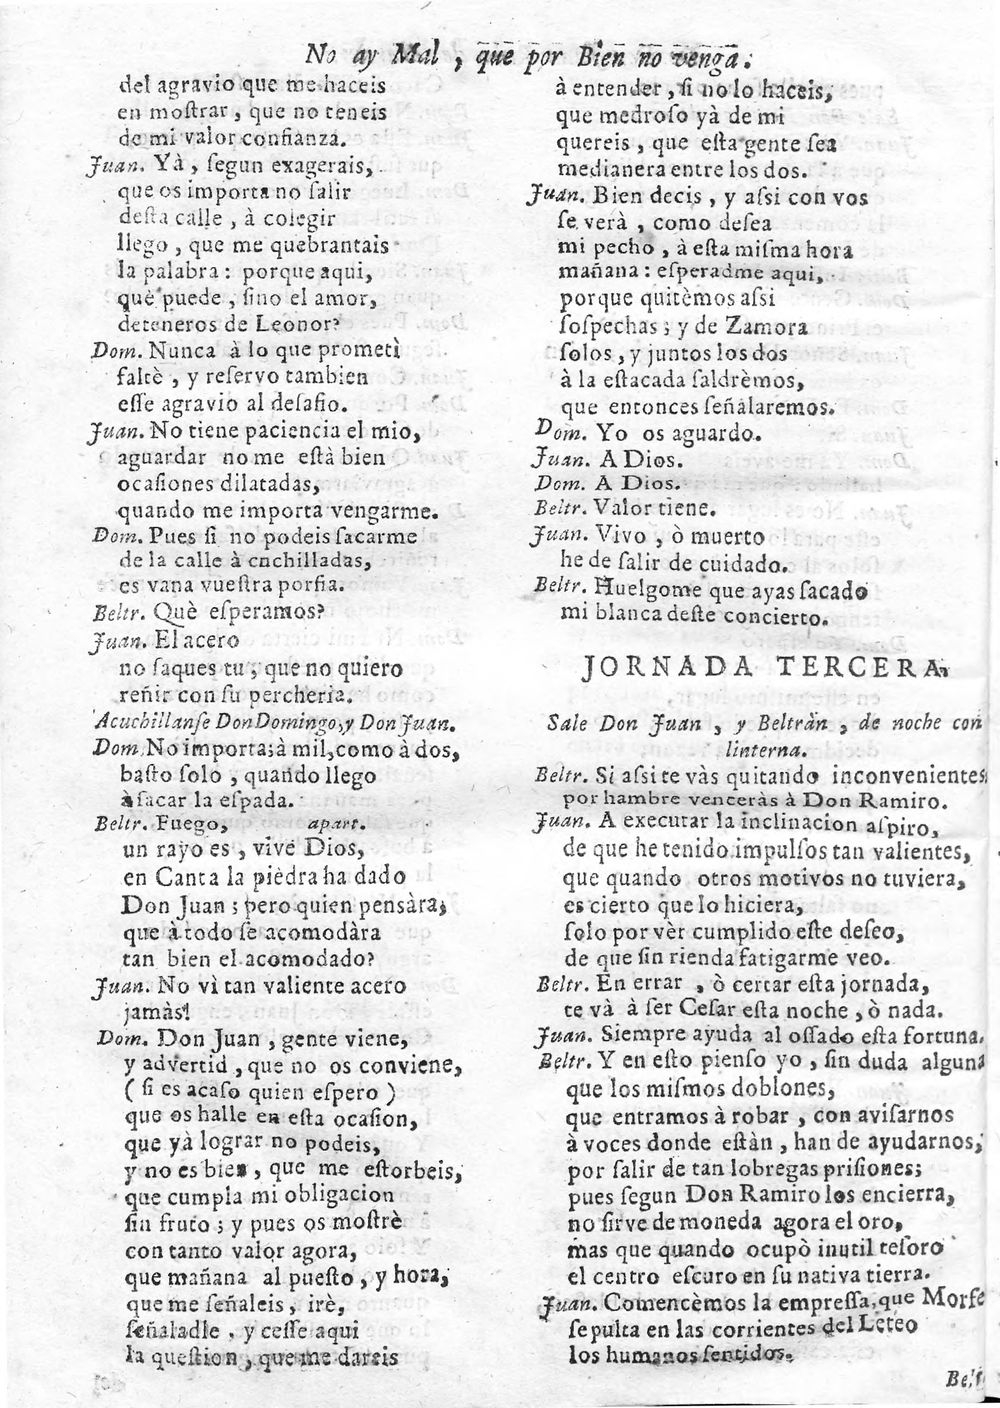 No ay Mal, que por Bien no venga.
del agravio que me haceis
en moſtrar, que no teneis
de mi valor confianza.
Juan. Yà, ſegun exagerais,
que os importa no ſalir
deſta calle, à colegir
llego, que me quebrantais
la palabra: porque aqui,
què puede, ſino el amor,
deteneros de Leonor?
Dom. Nunca à lo que prometì
faltè, y reſervo tambien
eſſe agravio al deſafio.
Juan. No tiene paciencia el mio,
aguardar no me eſtà bien
ocaſiones dilatadas,
quando me importa vengarme.
Dom. Pues ſi no podeis ſacarme
de la calle à cnchilladas,
es vana vueſtra porfia.
Beltr. Què eſperamos?
Juan. El acero
no ſaques tu, que no quiero
reñir con ſu percheria.
Acuchillanſe Don Domingo, y Don Juan.
Dom. No importa; à mil, como à dos,
baſto ſolo, quando llego
à ſacar la eſpada.
Beltr. Fuego, apart.
un rayo es, vive Dios,
en Canta la piedra ha dado
Don Juan; pero quien pensàra,
que à todo ſe acomodàra
tan bien el acomodado?
Juan. No vì tan valiente acero
jamàs!
Dom. Don Juan, gente viene,
y advertid, que no os conviene,
(ſi es acaſo quien eſpero)
que os halle en eſta ocaſion,
que yà lograr no podeis,
y no es bien, que me eſtorbeis,
que cumpla mi obligacion
ſin fruto; y pues os moſtrè
con tanto valor agora,
que mañana al pueſto, y hora,
que me ſeñaleis, irè,
ſeñaladle, y ceſſe aqui
la queſtion, que me dareis
à entender, ſi no lo haceis,
que medroſo yà de mi
quereis, que eſta gente ſea
medianera entre los dos.
Juan. Bien decis, y aſsi con vos
ſe verà, como deſea
mi pecho, à eſta miſma hora
mañana: eſperadme aqui,
porque quitèmos aſsi
ſoſpechas; y de Zamora
ſolos, y juntos los dos
à la eſtacada ſaldrèmos,
que entonces ſeñalaremos.
Dom. Yo os aguardo.
Juan. A Dios.
Dom. A Dios.
Beltr. Valor tiene.
Juan. Vivo, ò muerto
he de ſalir de cuidado.
Beltr. Huelgome que ayas ſacado
mi blanca deſte concierto.
JORNADA TERCERA,
Sale Don Juan, y Beltràn, de noche con
linterna.
Beltr. Si aſsi te vàs quitando inconvenientes,
por hambre venceràs à Don Ramiro.
Juan. A executar la inclinacion aſpiro,
de que he tenido impulſos tan valientes,
que quando otros motivos no tuviera,
es cierto que lo hiciera,
ſolo por vèr cumplido eſte deſeo,
de que ſin rienda fatigarme veo.
Beltr. En errar, ò certar eſta jornada,
te và à ſer Ceſar eſta noche, ò nada.
Juan. Siempre ayuda al oſſado eſta fortuna.
Beltr. Y en eſto pienſo yo, ſin duda alguna
que los miſmos doblones,
que entramos à robar, con aviſarnos
à voces donde eſtàn, han de ayudarnos,
por ſalir de tan lobregas priſiones;
pues ſegun Don Ramiro los encierra,
no ſirve de moneda agora el oro,
mas que quando ocupò inutil teſoro
el centro eſcuro en ſu nativa tierra.
Juan. Comencèmos la empreſſa, que Morfe
ſepulta en las corrientes del Leteo
los humanos ſentidos.
Belt